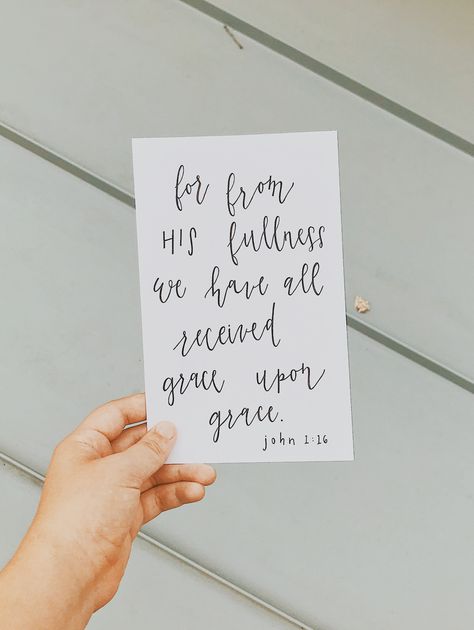 for from
HIS fullness
we have all
received
grace upon
grace.
john 1:16